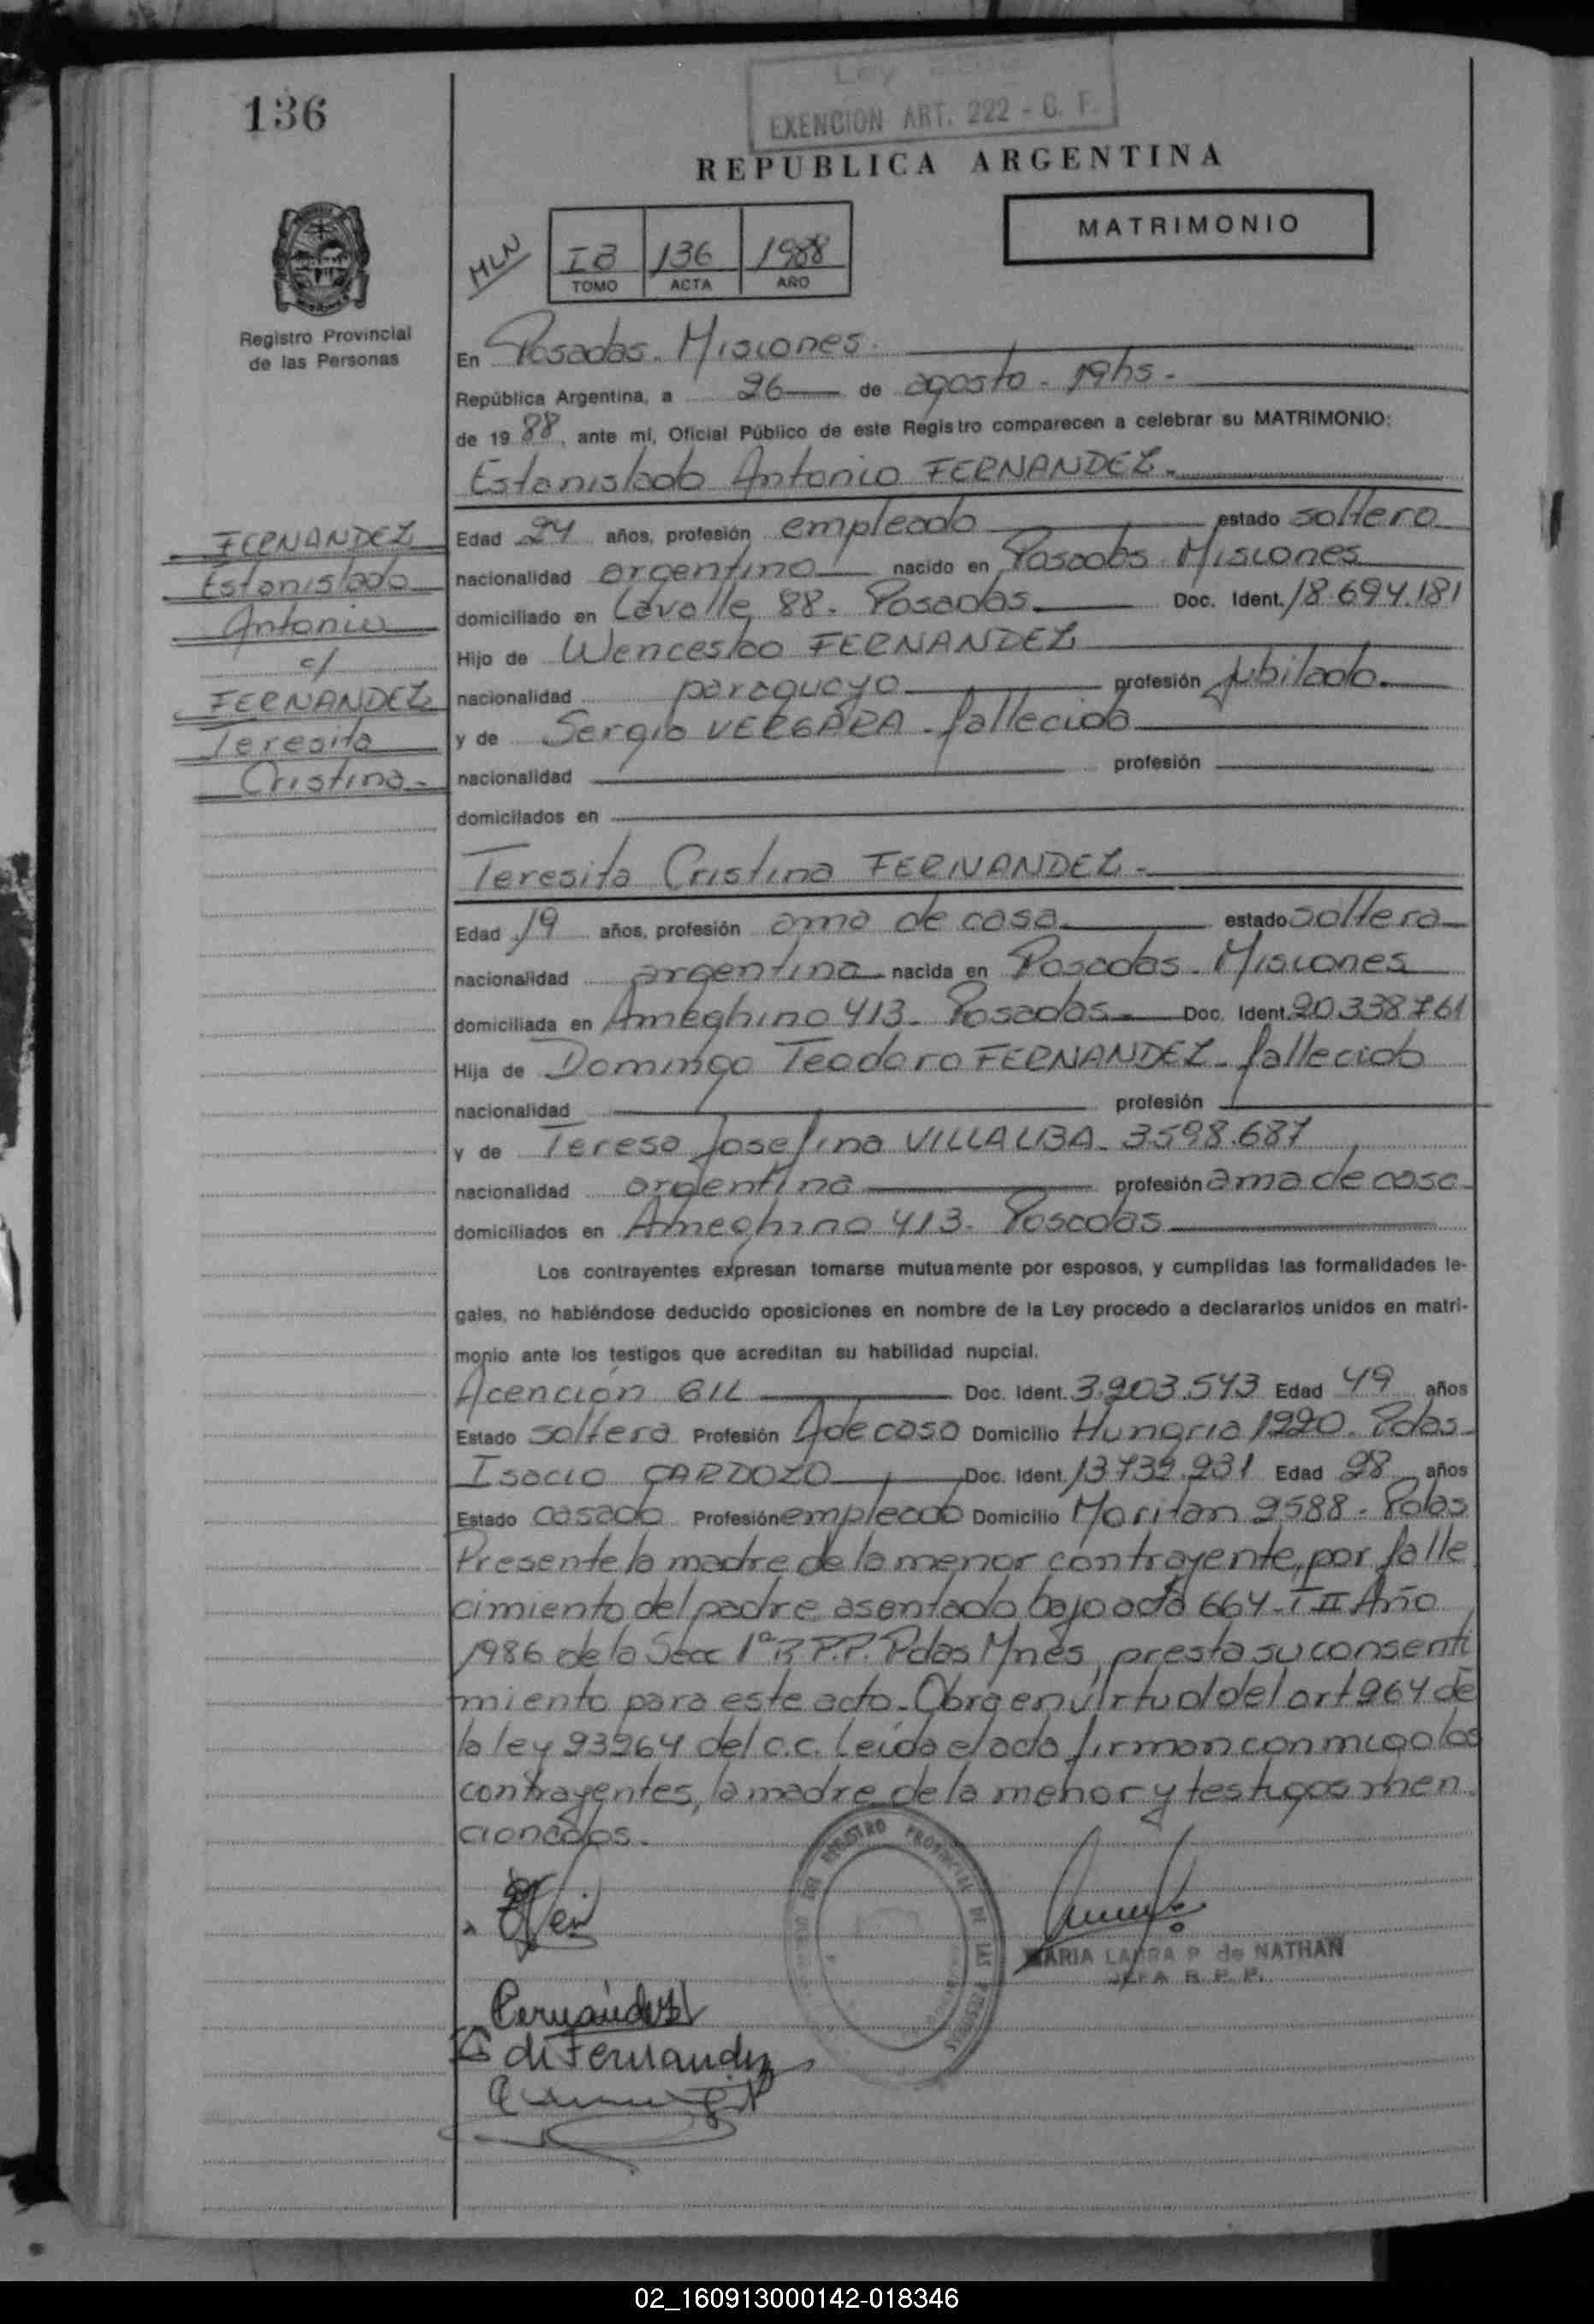 136
Ley
EXENCION ART. 222 - C. F.
REPUBLICA ARGENTINA
MATRIMONIO
MLN
136 1988
TOMO ACTA AÑO
Registro Provincial
de las Personas
En Posadas. Misiones.
República Argentina, a 26 de agosto - 19hs -
de 19 88, ante mí, Oficial Público de este Registro comparecen a celebrar su MATRIMONIO:
Estanislado Antonio FERNANDEZ.
FERNANDEZ
Estanislado
Antonio
c/
FERNANDEZ
Teresita
Cristina -
Edad 24 años, profesión empleado estado soltero
nacionalidad argentino nacido en Posadas Misiones
domiciliado en Lavalle 88. Posadas. Doc. Ident. 18.694.181
Hijo de Wenceslao FERNANDEZ
nacionalidad paraguayo profesión jubilado.
y de Sergia VERGARA - fallecida
nacionalidad profesión
domicilados en
Teresita Cristina FERNANDEZ -
Edad 19 años, profesión ama de casa estado soltera
nacionalidad argentina nacida en Posadas - Misiones
domiciliada en Ameghino 413 - Posadas Doc. Ident. 20.338.761
Hija de Domingo Teodoro FERNANDEZ - fallecido
nacionalidad profesión
y de Teresa Josefina VILLALBA - 3.598.687
nacionalidad argentina profesión ama de casa
domiciliados en Ameghino 413 - Posadas
Los contrayentes expresan tomarse mutuamente por esposos, y cumplidas las formalidades le-
gales, no habiéndose deducido oposiciones en nombre de la Ley procedo a declararlos unidos en matri-
monio ante los testigos que acreditan su habilidad nupcial.
Acención GIL Doc. Ident. 3.203.543 Edad 49 años
Estado soltera Profesión A de casa Domicilio Hungria 1220. Pdas -
Isacio CARDOZO Doc. Ident. 13.732.231 Edad 28 años
Estado casado Profesión empleado Domicilio 2588 - Pdas
Presente la madre de la menor contrayente, por falle
cimiento del padre asentado bajo acta 664 - T II Año
1986 de la Secc 1ª R.P.P. Pdas Mnes, presta su consenti
miento para este acto - Obra en virtud del art 264 de
la ley 23264 del c.c. Leída el acta firman conmigo los
contrayentes, la madre de la menor y testigos men
cionados.
REGISTRO PROVINCIAL DE LAS PERSONAS
MARIA LAURA P. de NATHAN
JEFA R. P. P.
Fernández
de Fernandez
02_160913000142-018346